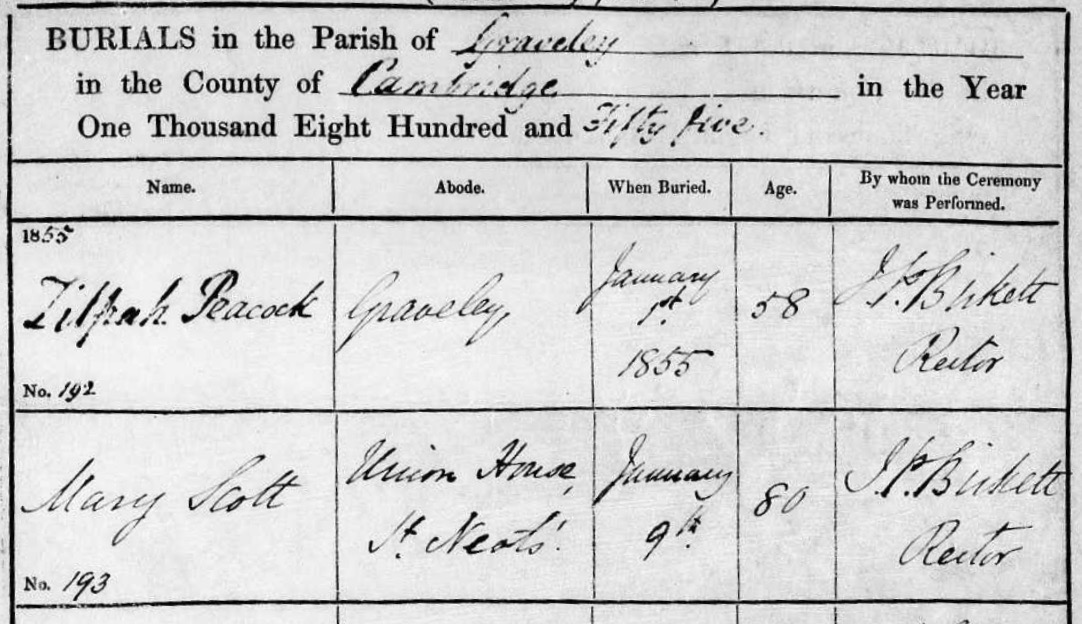 BURIALS in the Parish of Graveley
in the County of Cambridge in the Year
One Thousand Eight Hundred and Fifty five.
Name. Abode. When Buried. Age. By whom the Ceremony
was Performed.
1855
Zilpah Peacock
Graveley,
January
1st
1855
58
J. P. Birkett
Rector
No. 192
Mary Scott
Union House,
St. Neots'.
January
9th
80
J. P. Birkett
Rector
No. 193